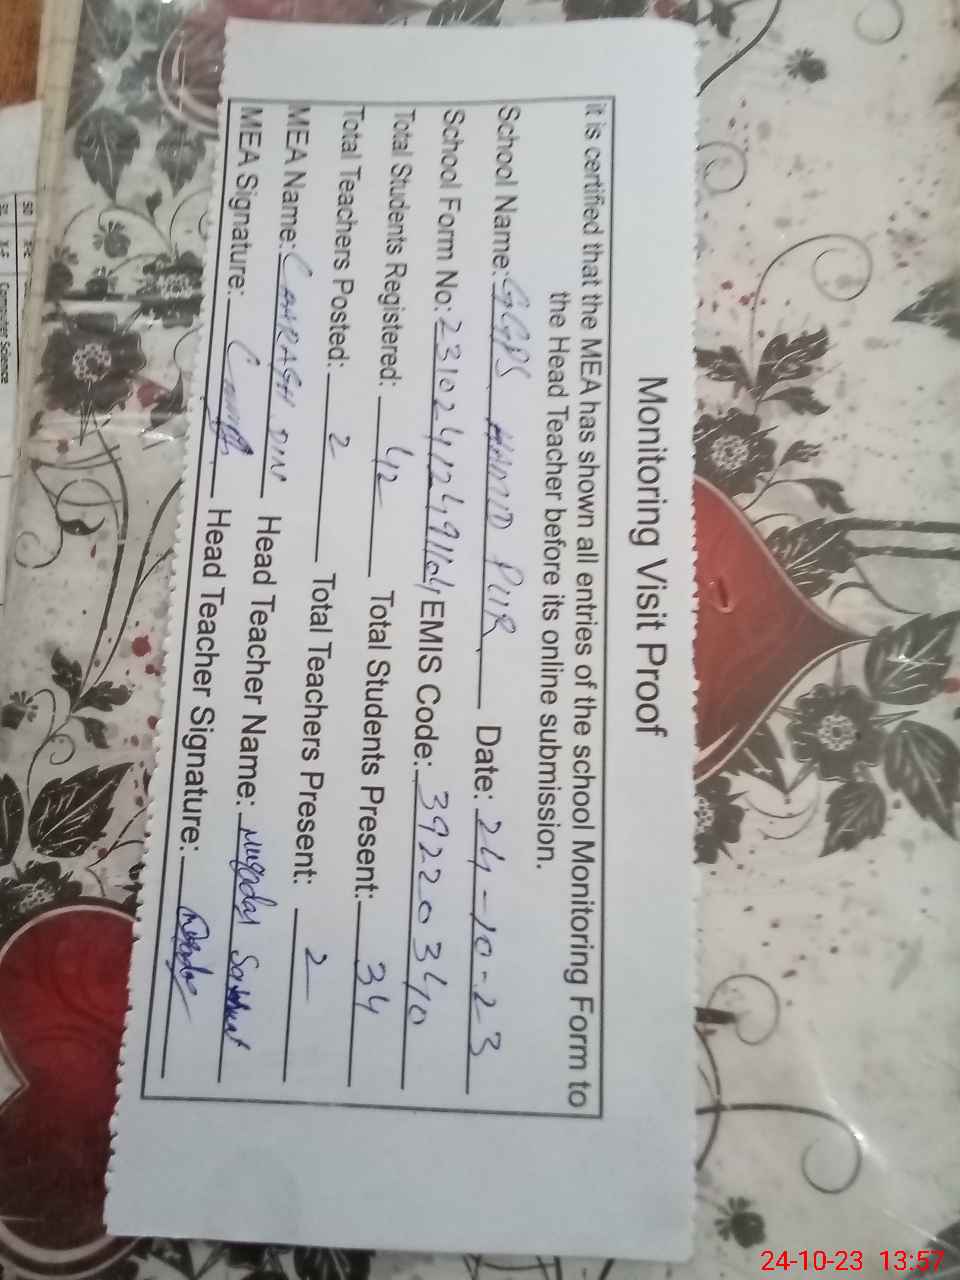 Monitoring Visit Proof
it is certified that the MEA has shown all entries of the school Monitoring Form to
the Head Teacher before its online submission.
School Name: GGPS HAMID PUR Date: 24-10-23
School Form No: EMIS Code: 39220340
Total Students Registered: 42 Total Students Present: 34
Total Teachers Posted: 2 Total Teachers Present: 2
MEA Name: CHIRAGH DIN Head Teacher Name: Muqadas
MEA Signature: Head Teacher Signature:
Computer Science
24-10-23 13:57